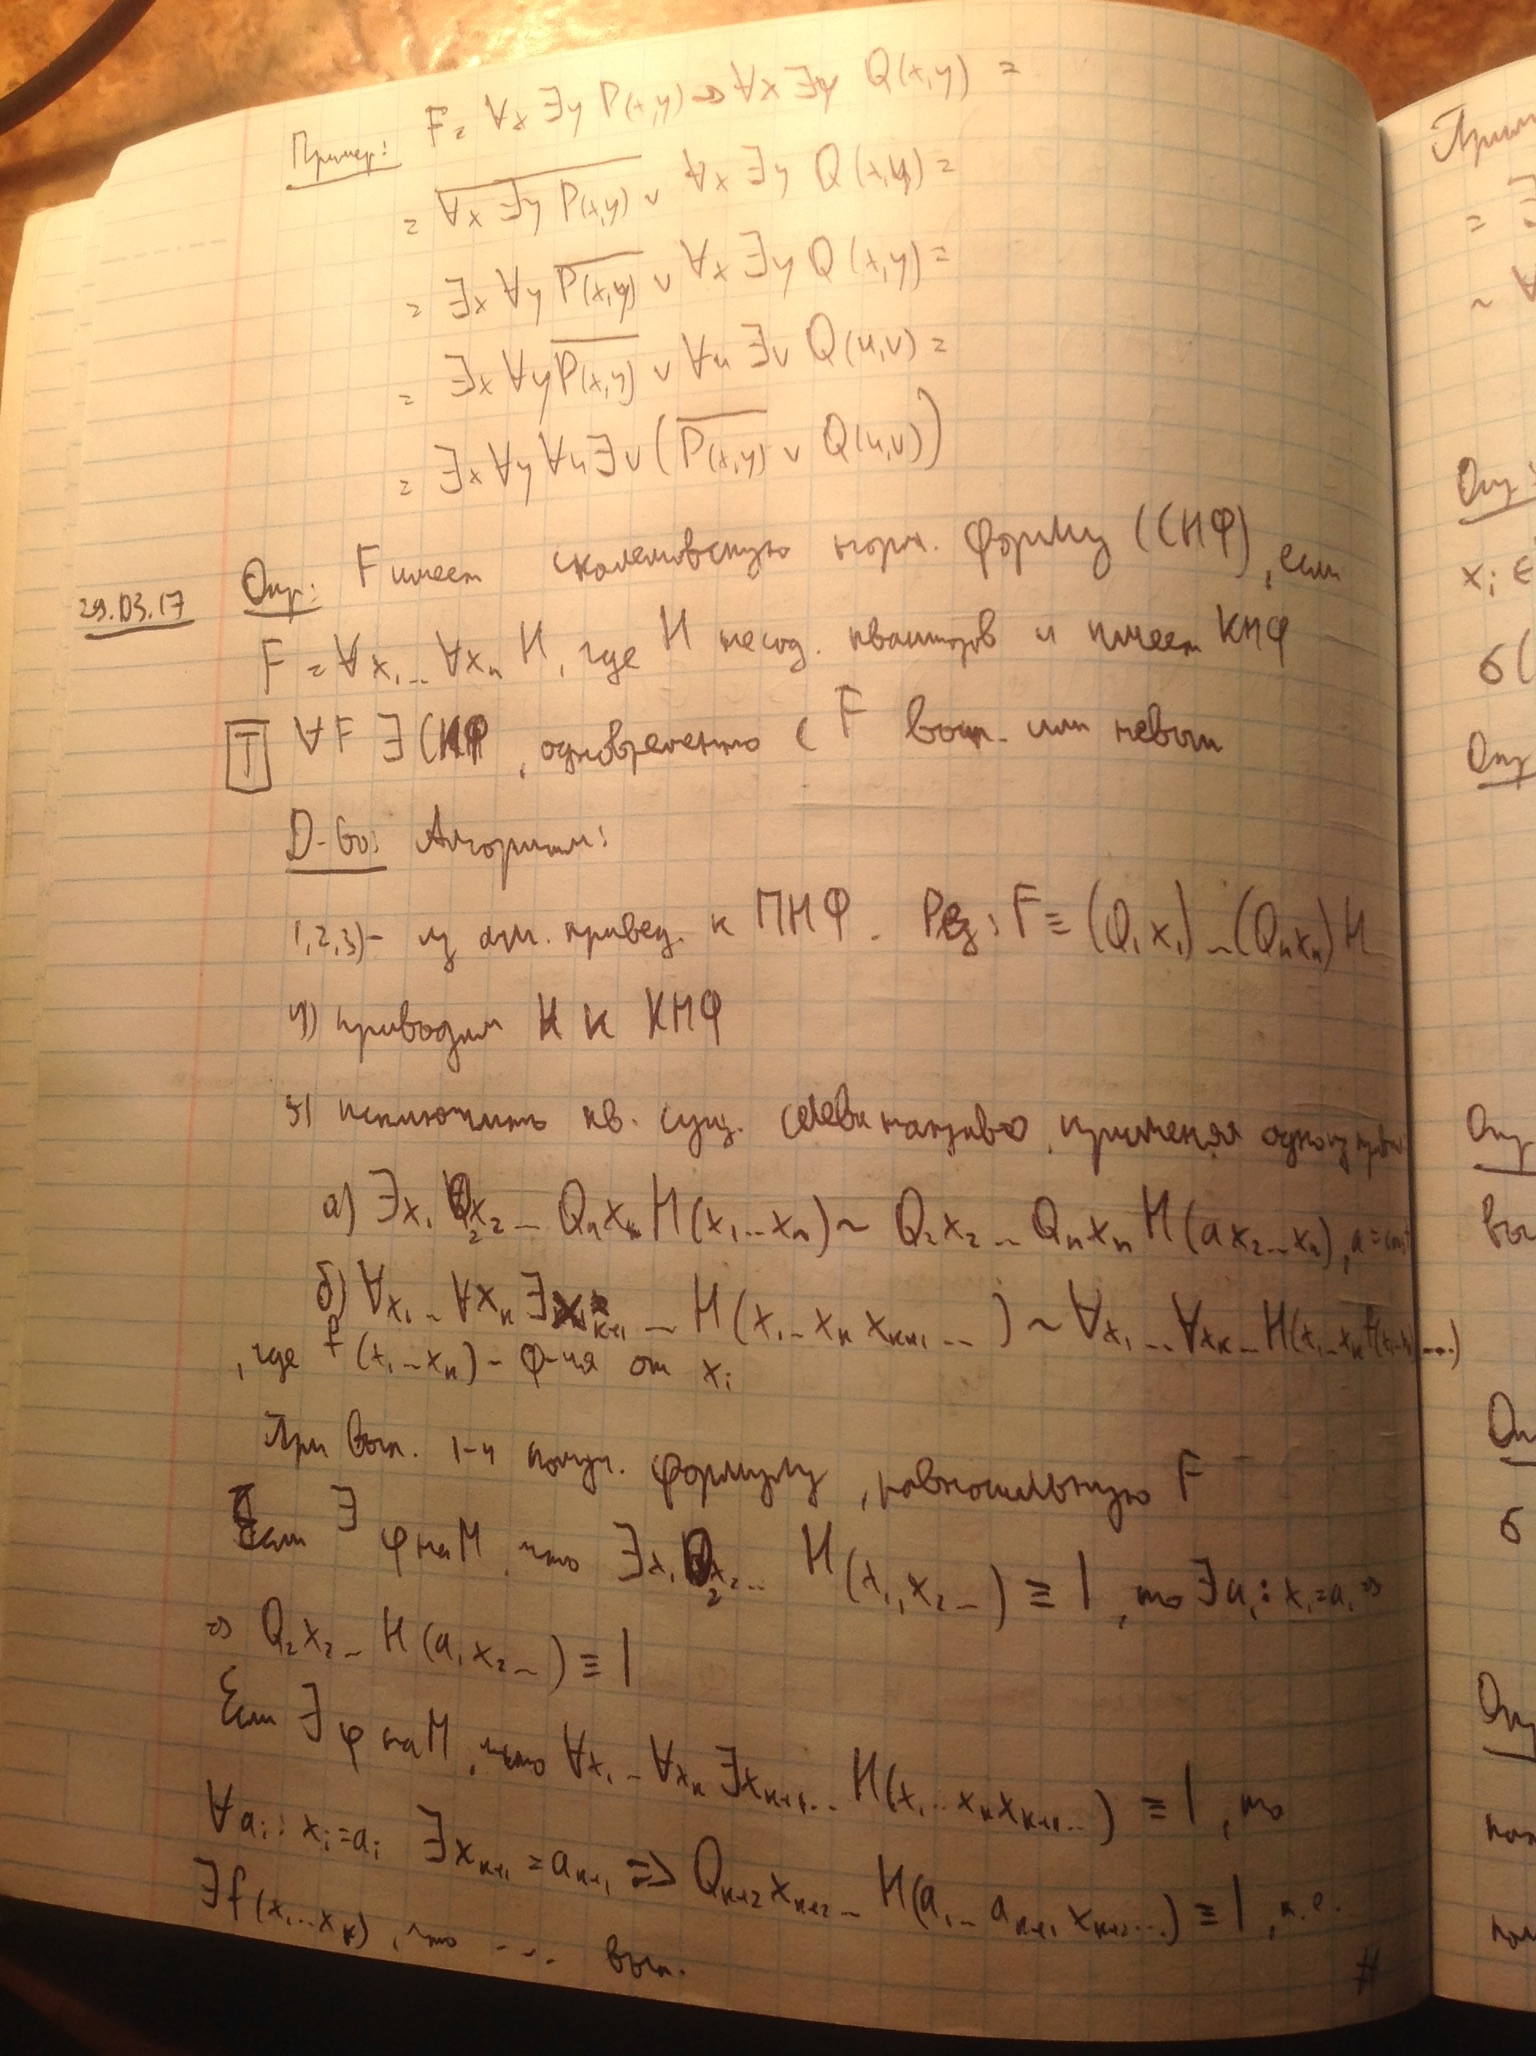 Пример: F = ∀x ∃y P(x,y) → ∀x ∃y Q(x,y) =
= \overline{∀x ∃y P(x,y)} ∨ ∀x ∃y Q(x,y) =
= ∃x ∀y \overline{P(x,y)} ∨ ∀x ∃y Q(x,y) =
= ∃x ∀y \overline{P(x,y)} ∨ ∀u ∃v Q(u,v) =
= ∃x ∀y ∀u ∃v (\overline{P(x,y)} ∨ Q(u,v))
29.03.17 Опр: F имеет сколемовскую норм. форму (СНФ), если
F = ∀x₁...∀xₙ H, где H не сод. кванторов и имеет КНФ
T ∀F ∃ СНФ, одновременно с F вып. или невып
D-во: Алгоритм:
1,2,3) - из алг. привед. к ПНФ. Рез: F ≡ (Q₁x₁)...(Qₙxₙ) H
4) приводим H к КНФ
5) исключить кв. сущ. слева направо, применяя одно из прав
а) ∃x₁ Q₂x₂...Qₙxₙ H(x₁...xₙ) ~ Q₂x₂...Qₙxₙ H(a x₂...xₙ), a = const
б) ∀x₁...∀xₖ ∃xₖ₊₁... H(x₁...xₖ xₖ₊₁...) ~ ∀x₁...∀xₖ... H(x₁...xₖ f(x₁...xₖ)...)
, где f(x₁...xₖ) - ф-ия от xᵢ
При вып. 1-4 получ. формулу, равносильную F
Если ∃ φ на M, что ∃x₁ Q₂x₂... H(x₁,x₂...) ≡ 1, то ∃a₁: x₁=a₁ ⇒
⇒ Q₂x₂... H(a₁ x₂...) ≡ 1
Если ∃ φ на M, что ∀x₁...∀xₖ ∃xₖ₊₁... H(x₁...xₖ xₖ₊₁...) ≡ 1, то
∀aᵢ: xᵢ=aᵢ ∃xₖ₊₁ = aₖ₊₁ ⇒ Qₖ₊₂xₖ₊₂... H(a₁...aₖ₊₁ xₖ₊₂...) ≡ 1, т.е.
∃f(x₁...xₖ), что ... вып. #
Прим
= ∃
~ ∀
Опр
xᵢ ∈
б(
Опр
Опр
вы
Оп
б
Опр